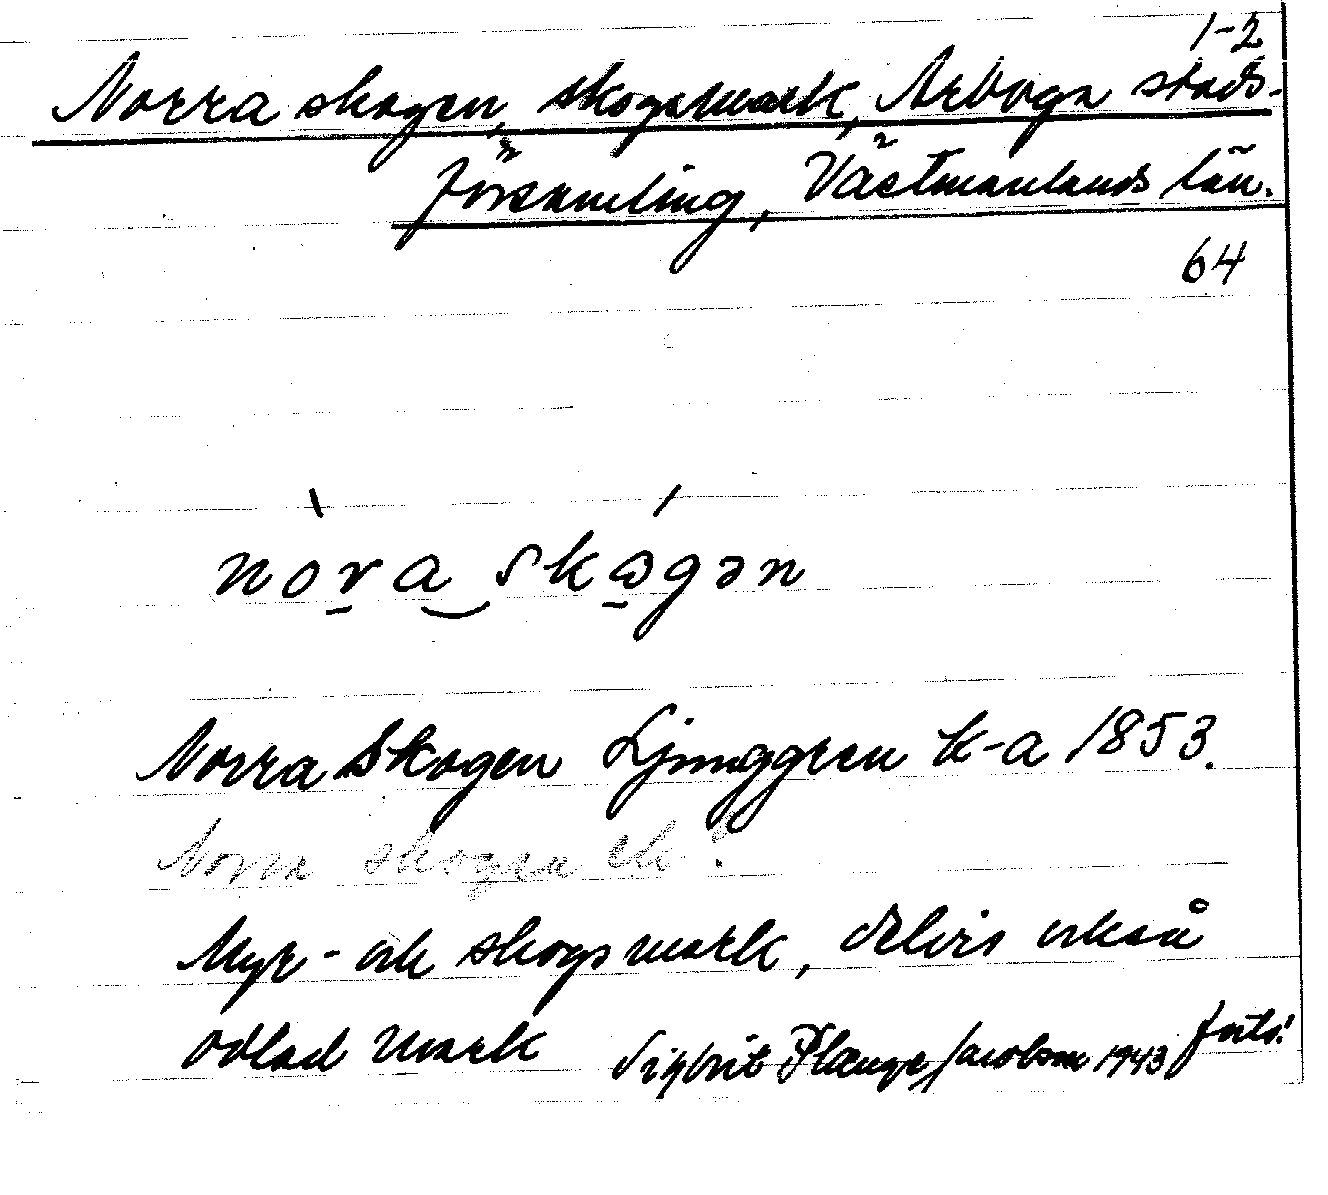 1-2
Norra skogen, skogsmark, Arboga stads-
församling, Västmanlands län.
64
nòra skɷ́gən
Norra Skogen Ljunggren k-a 1853.
Norra skogen ek !
Myr- och skogsmark, delvis också
odlad mark Sigbrit Plænge Jacobson 1943 forts!